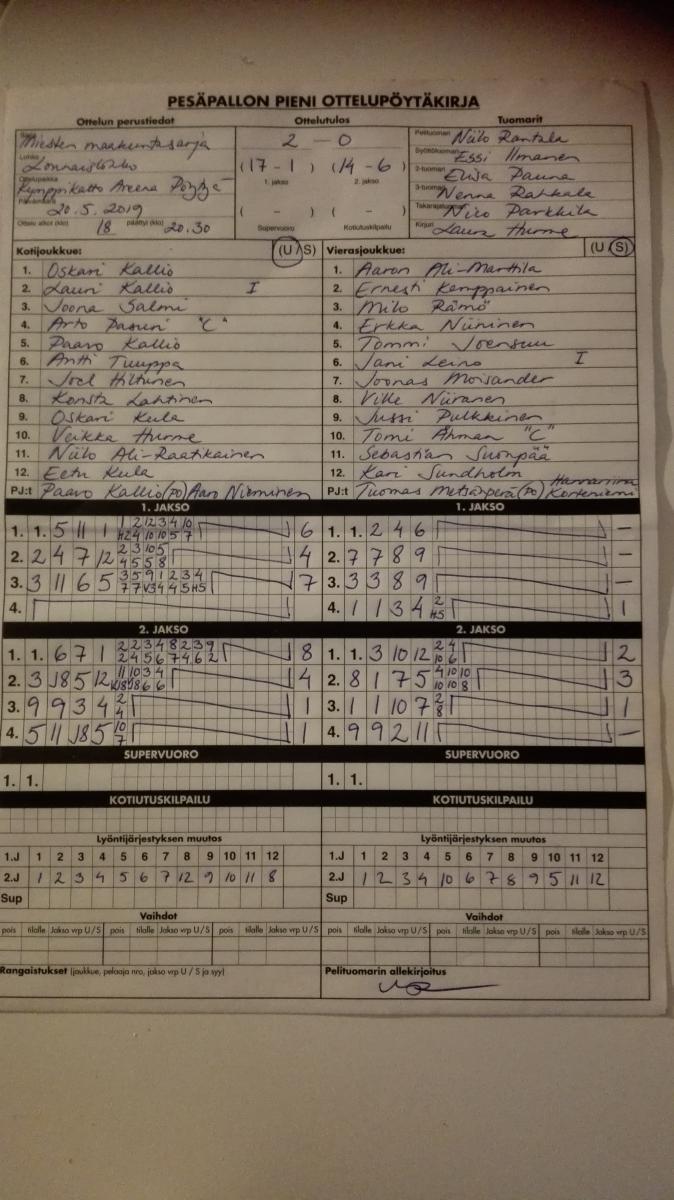 PESÄPALLON PIENI OTTELUPÖYTÄKIRJA
Ottelun perustiedot Ottelutulos Tuomarit
Miesten maakuntasarja 2 - 0 Pelituomari Niilo Rantala
Lohko Lounaislohko (17 - 1) (14 - 6) Syöttötuomari Essi Ilmanen
Ottelupaikka Kymppikatto Areena Pöytyä 1. jakso 2. jakso 2-tuomari Elisa Pauna
Päivämäärä 20.5.2019 ( - ) ( - ) 3-tuomari Nenna Rahkala
Ottelu alkoi (klo) 18 päättyi (klo) 20.30 Supervuoro Kotiutuskilpailu Takarajatuomari Niko Parkkila
Kirjuri Laura Hurme
Kotijoukkue: (U/S) Vierasjoukkue: (U/S)
1. Oskari Kallio 1. Aaron Ali-Marttila
2. Lauri Kallio I 2. Ernesti Kemppainen
3. Joona Salmi 3. Milo Rämö
4. Arto "C" 4. Erkka Niininen
5. Paavo Kallio 5. Tommi Joensuu
6. Antti Tuuppa 6. Jani Leino I
7. Joel Hiltunen 7. Joonas Moisander
8. Konsta Lahtinen 8. Ville Niiranen
9. Oskari Kula 9. Jussi Pulkkinen
10. Veikka Hurme 10. Tomi Åhman "C"
11. Niilo Ali-Raatikainen 11. Sebastian Suonpää
12. Eetu Kula 12. Kari Sundholm
PJ:t Paavo Kallio (PJ) Aaro Nieminen PJ:t Tuomas Metsäperä (PJ) Korteniemi
1. JAKSO 1. JAKSO
1. 1. 5 11 1 6 1. 1. 2 4 6 –
2. 2 4 7 12 4 2. 7 7 8 9 –
3. 3 11 6 5 7 3. 3 3 8 9 –
4. 4. 1 1 3 4 1
2. JAKSO 2. JAKSO
1. 1. 6 7 1 8 1. 1. 3 10 12 2
2. 3 J8 5 12 4 2. 8 1 7 5 3
3. 9 9 3 4 1 3. 1 1 10 7 1
4. 5 11 J8 5 1 4. 9 9 2 11 –
SUPERVUORO SUPERVUORO
1. 1. 1. 1.
KOTIUTUSKILPAILU KOTIUTUSKILPAILU
Lyöntijärjestyksen muutos Lyöntijärjestyksen muutos
1.J 1 2 3 4 5 6 7 8 9 10 11 12 1.J 1 2 3 4 5 6 7 8 9 10 11 12
2.J 1 2 3 4 5 6 7 12 9 10 11 8 2.J 1 2 3 4 10 6 7 8 9 5 11 12
Sup Sup
Vaihdot Vaihdot
pois tilalle Jakso vrp U/S pois tilalle Jakso vrp U/S pois tilalle Jakso vrp U/S pois tilalle Jakso vrp U/S pois tilalle Jakso vrp U/S pois tilalle Jakso vrp U/S
Rangaistukset (joukkue, pelaaja nro, jakso vrp U / S ja syy) Pelituomarin allekirjoitus